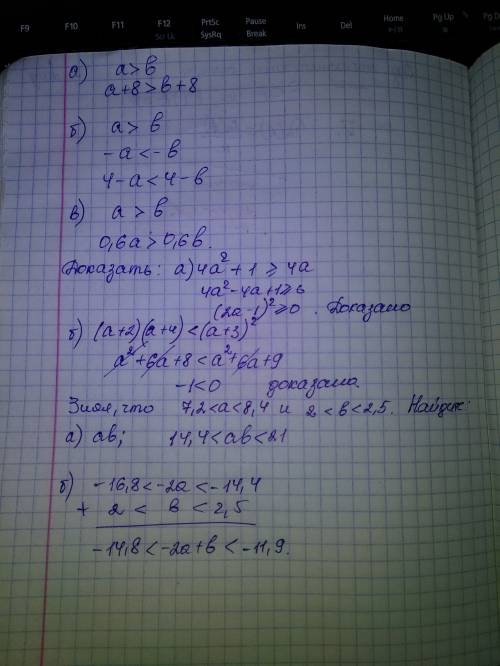 F9 F10 F11 F12 PrtSc Pause Ins Del Home Pg Up Pg
Scr Lk SysRq Break
а) a>b
a+8>b+8
б) a>b
-a<-b
4-a<4-b
в) a>b
0,6a>0,6b.
Доказать: а) 4a²+1≥4a
4a²-4a+1≥0
(2a-1)²≥0. Доказано
б) (a+2)(a+4)<(a+3)²
a²+6a+8<a²+6a+9
-1<0 доказано.
Зная, что 7,2<a<8,4 и 2<b<2,5. Найдите:
а) ab; 14,4<ab<21
б) -16,8<-2a<-14,4
+ 2 < b < 2,5
-14,8<-2a+b<-11,9.